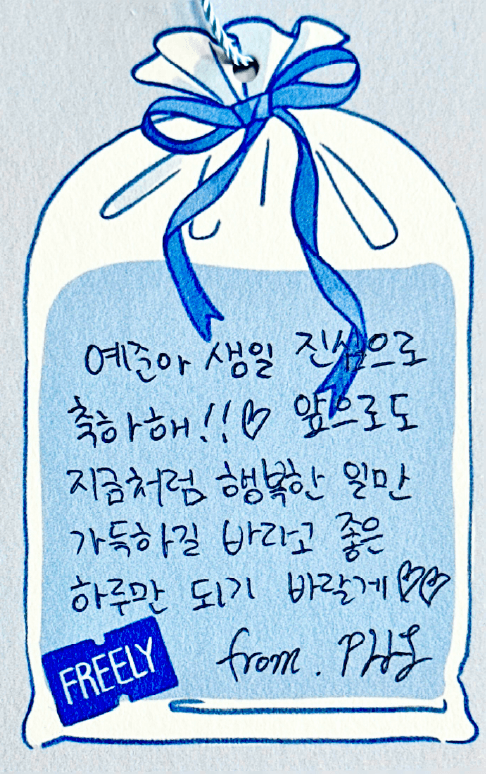 예준아 생일 진심으로
축하해!!♡ 앞으로도
지금처럼 행복한 일만
가득하길 바라고 좋은
하루만 되기 바랄게♡♡
from. PHJ
FREELY